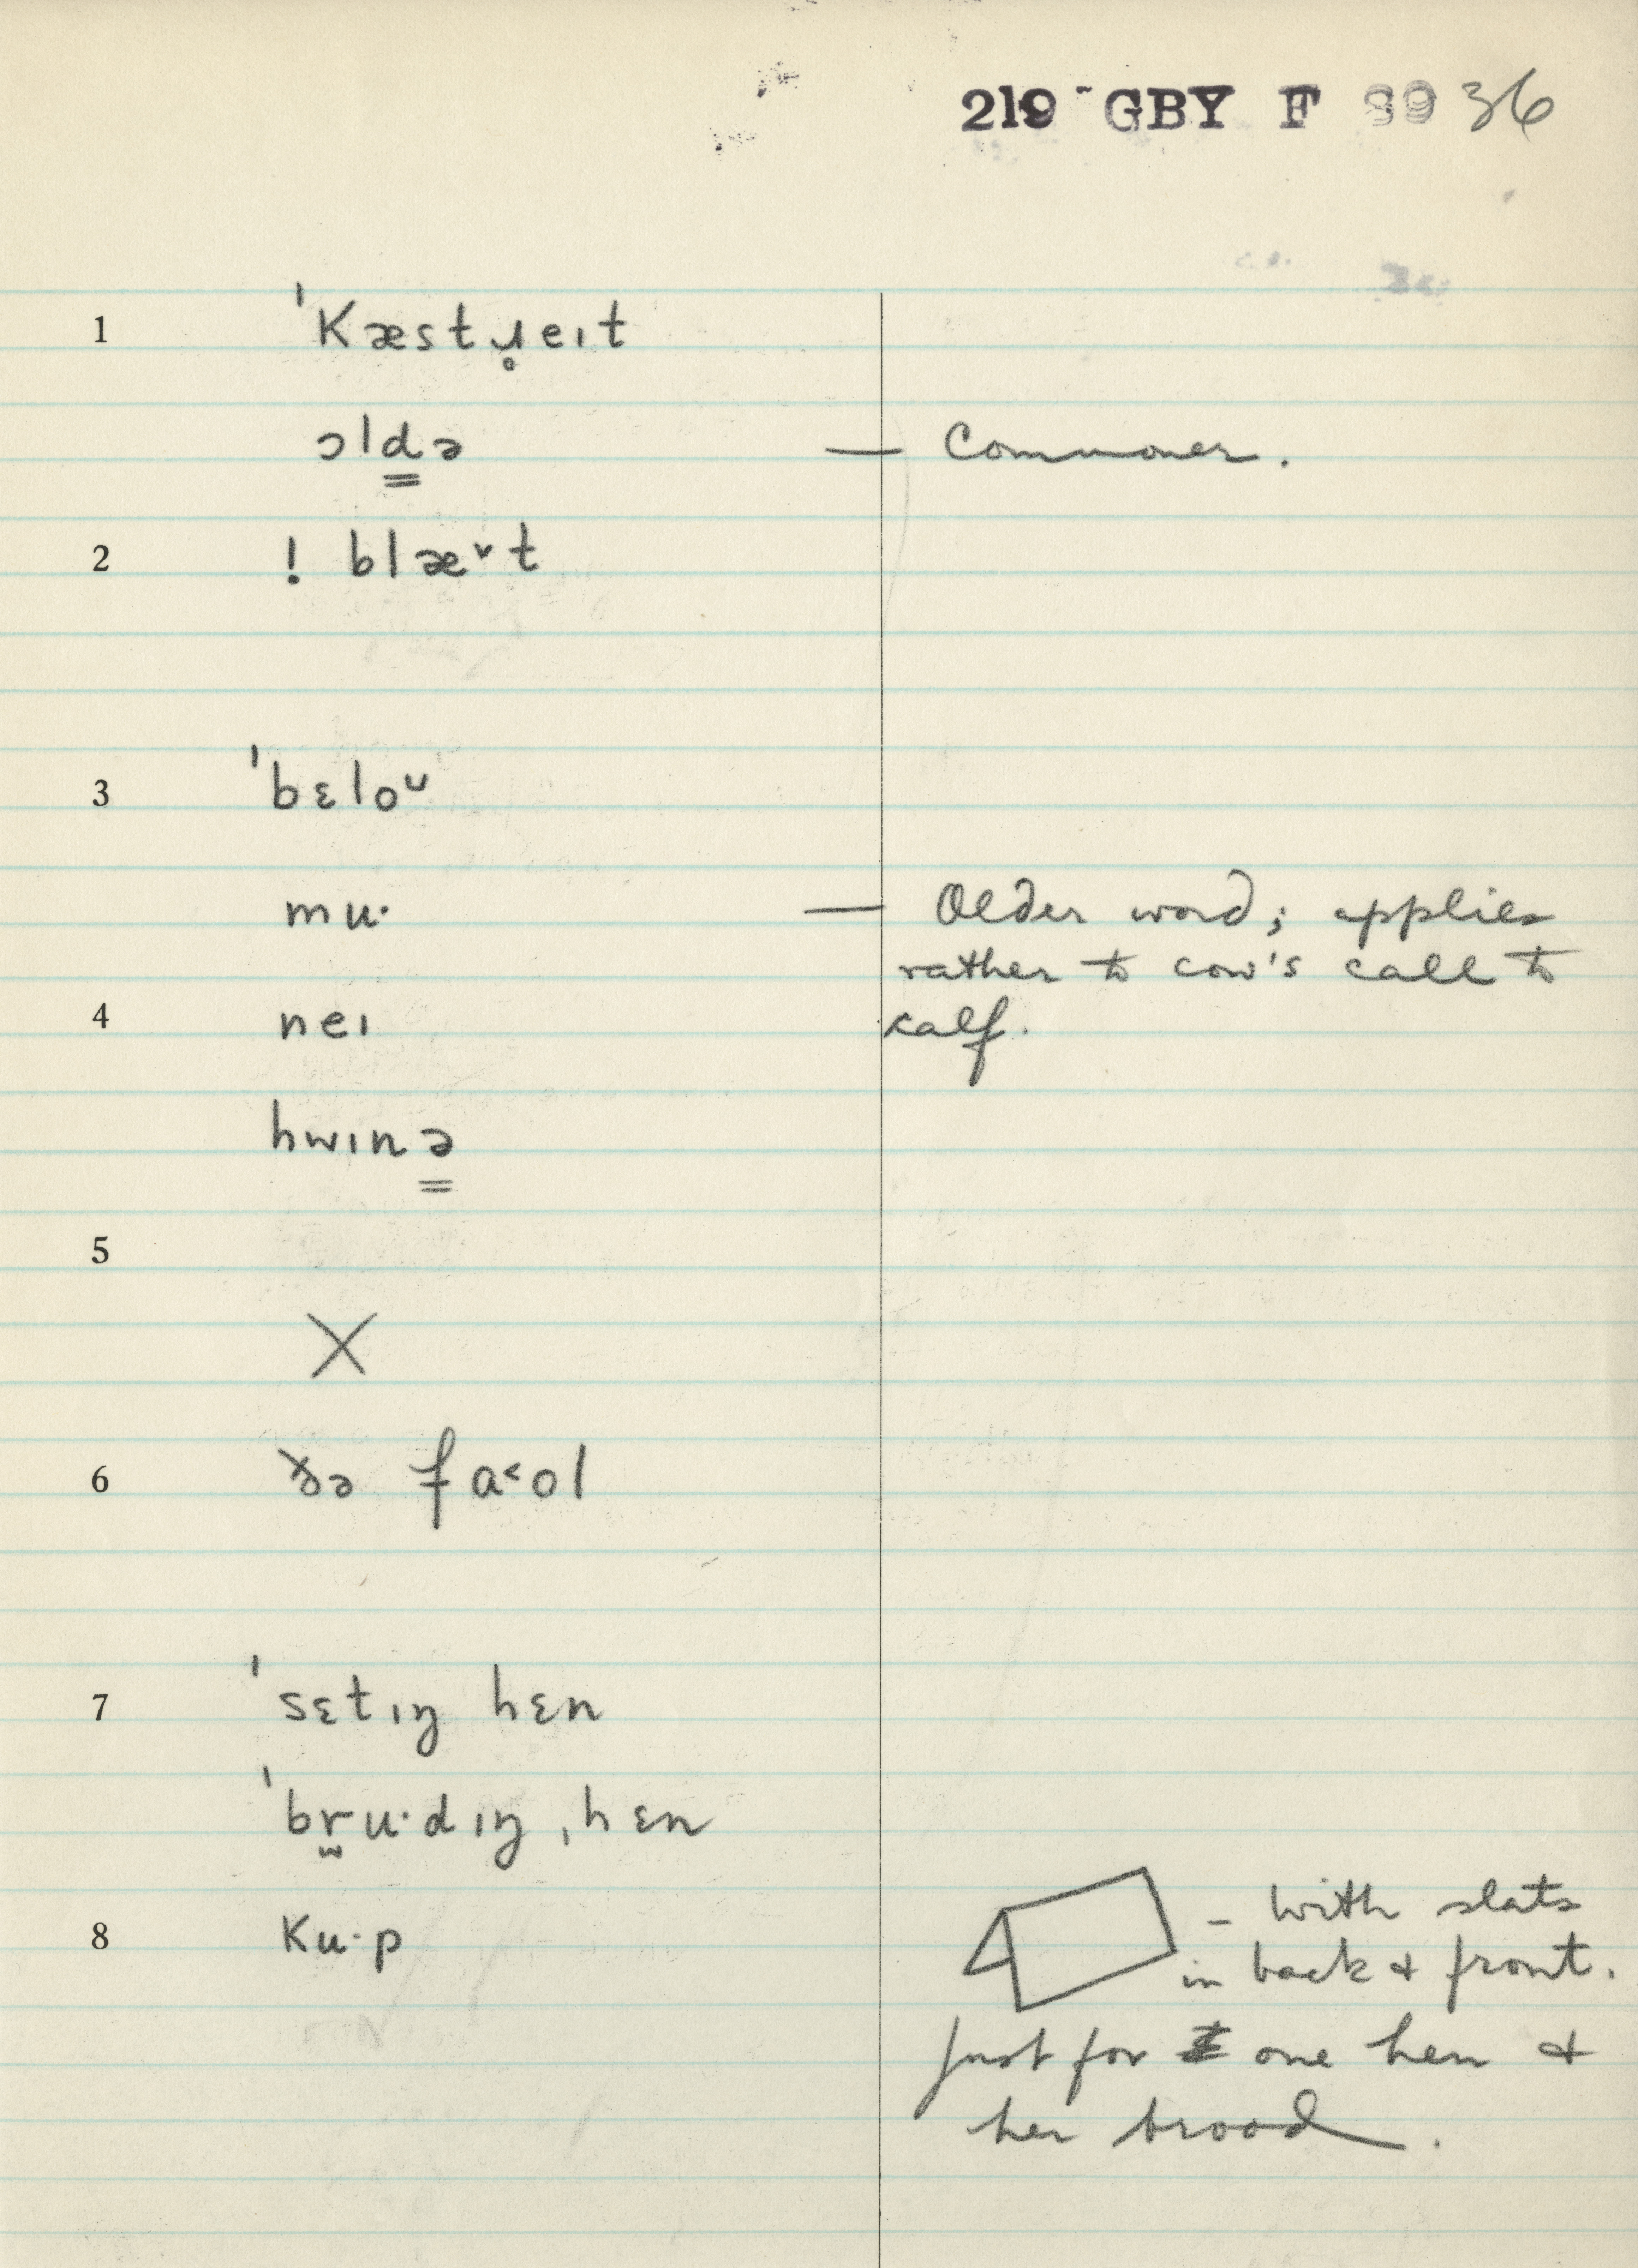 219 GBY F 89 36
1 ˈkæstɹ̥eɪt
ɔld̳ə — Commoner.
2 ! blæ˅t
3 ˈbɛloᴜ
mu· — Older word; applies
rather to cow's call to
4 neɪ calf.
hwɪnə̳
5
X
6 ðə fa˂ol
7 ˈsɛtɪŋ hɛn
ˈbr̫u·dɪŋ ˌhɛn
8 ku·p – with slats
in back & front.
Just for one hen &
her brood.